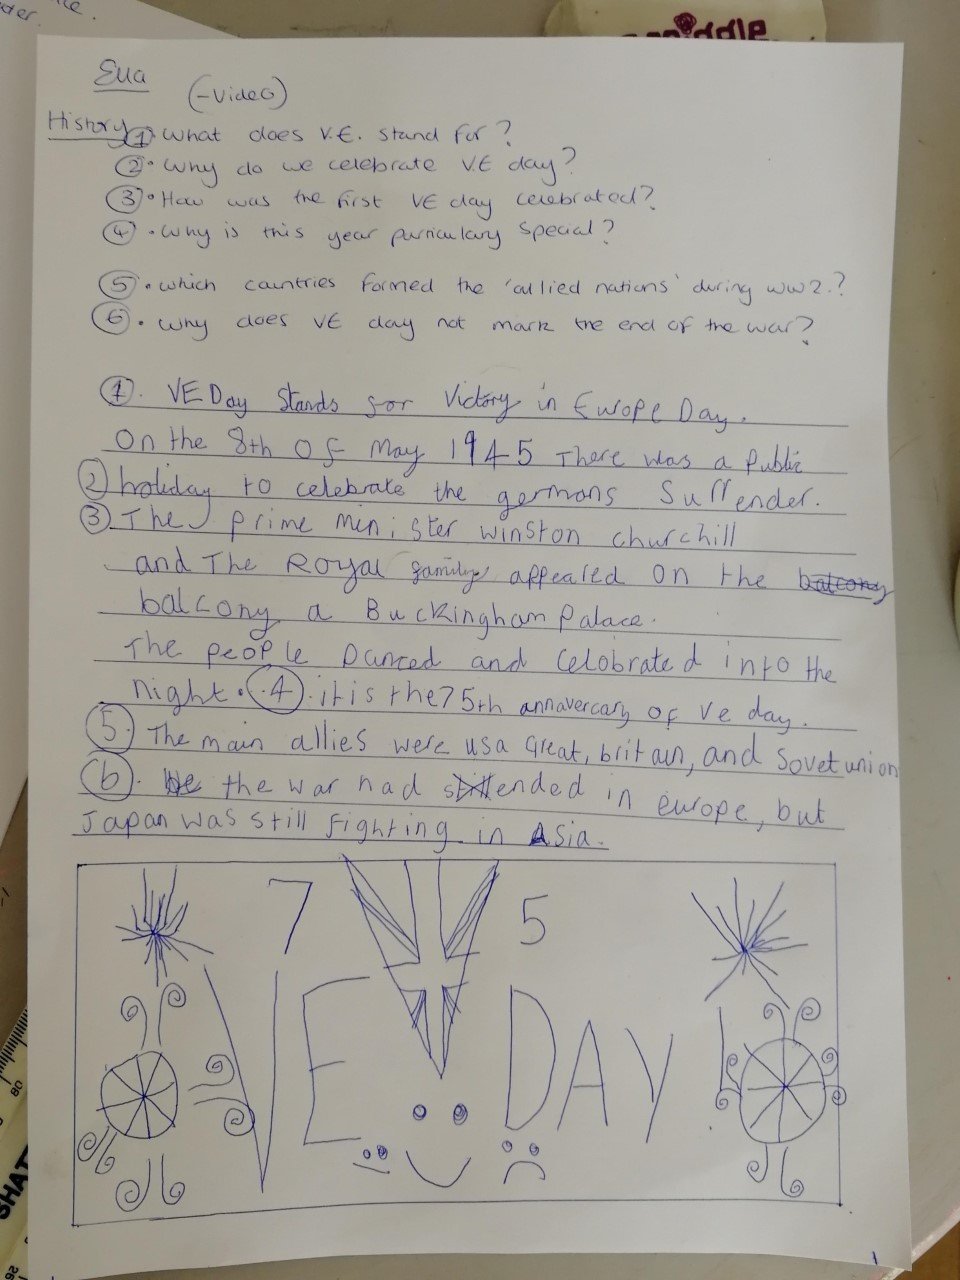 Eua
(-Video)
History ① What does V.E. stand for?
②. Why do we celebrate V.E day?
③. How was the first VE day celebrated?
④. Why is this year purriculary special?
⑤. which countries formed the 'allied nations' during ww2.?
⑥. Why does VE day not mark the end of the war?
①. VE Day Stands for Victory in Europe Day.
On the 8th of May 1945 There was a Public
② holiday to celebrate the germans Surrender.
③ The prime minister winston churchill
and The Royal family appealed on the balcony
balcony a Buckingham Palace.
The people Danced and Celobrated into the
night. ④. it is the 75th annavercary of Ve day.
⑤. The main allies were usa Great, britain, and Sovet union
⑥. the war had ended in europe, but
Japan was still fighting in Asia.
7 5
VE DAY !